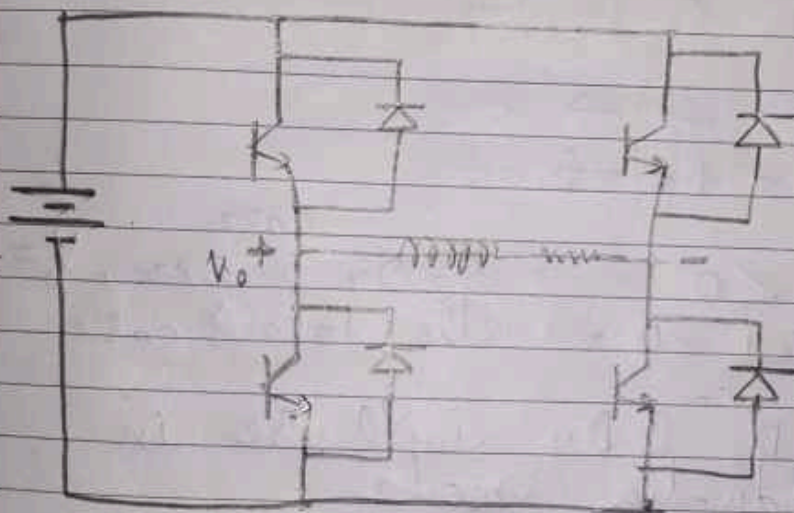 V₀ + -